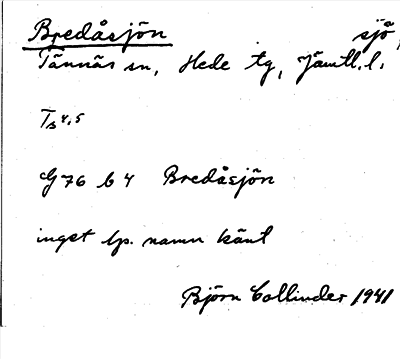 Bredåsjön sjö,
Tännäs sn, Hede tg, Jämtl. l.
Ts 4,5
G 76 b 4 Bredåsjön
inget lp. namn känt
Björn Collinder 1941